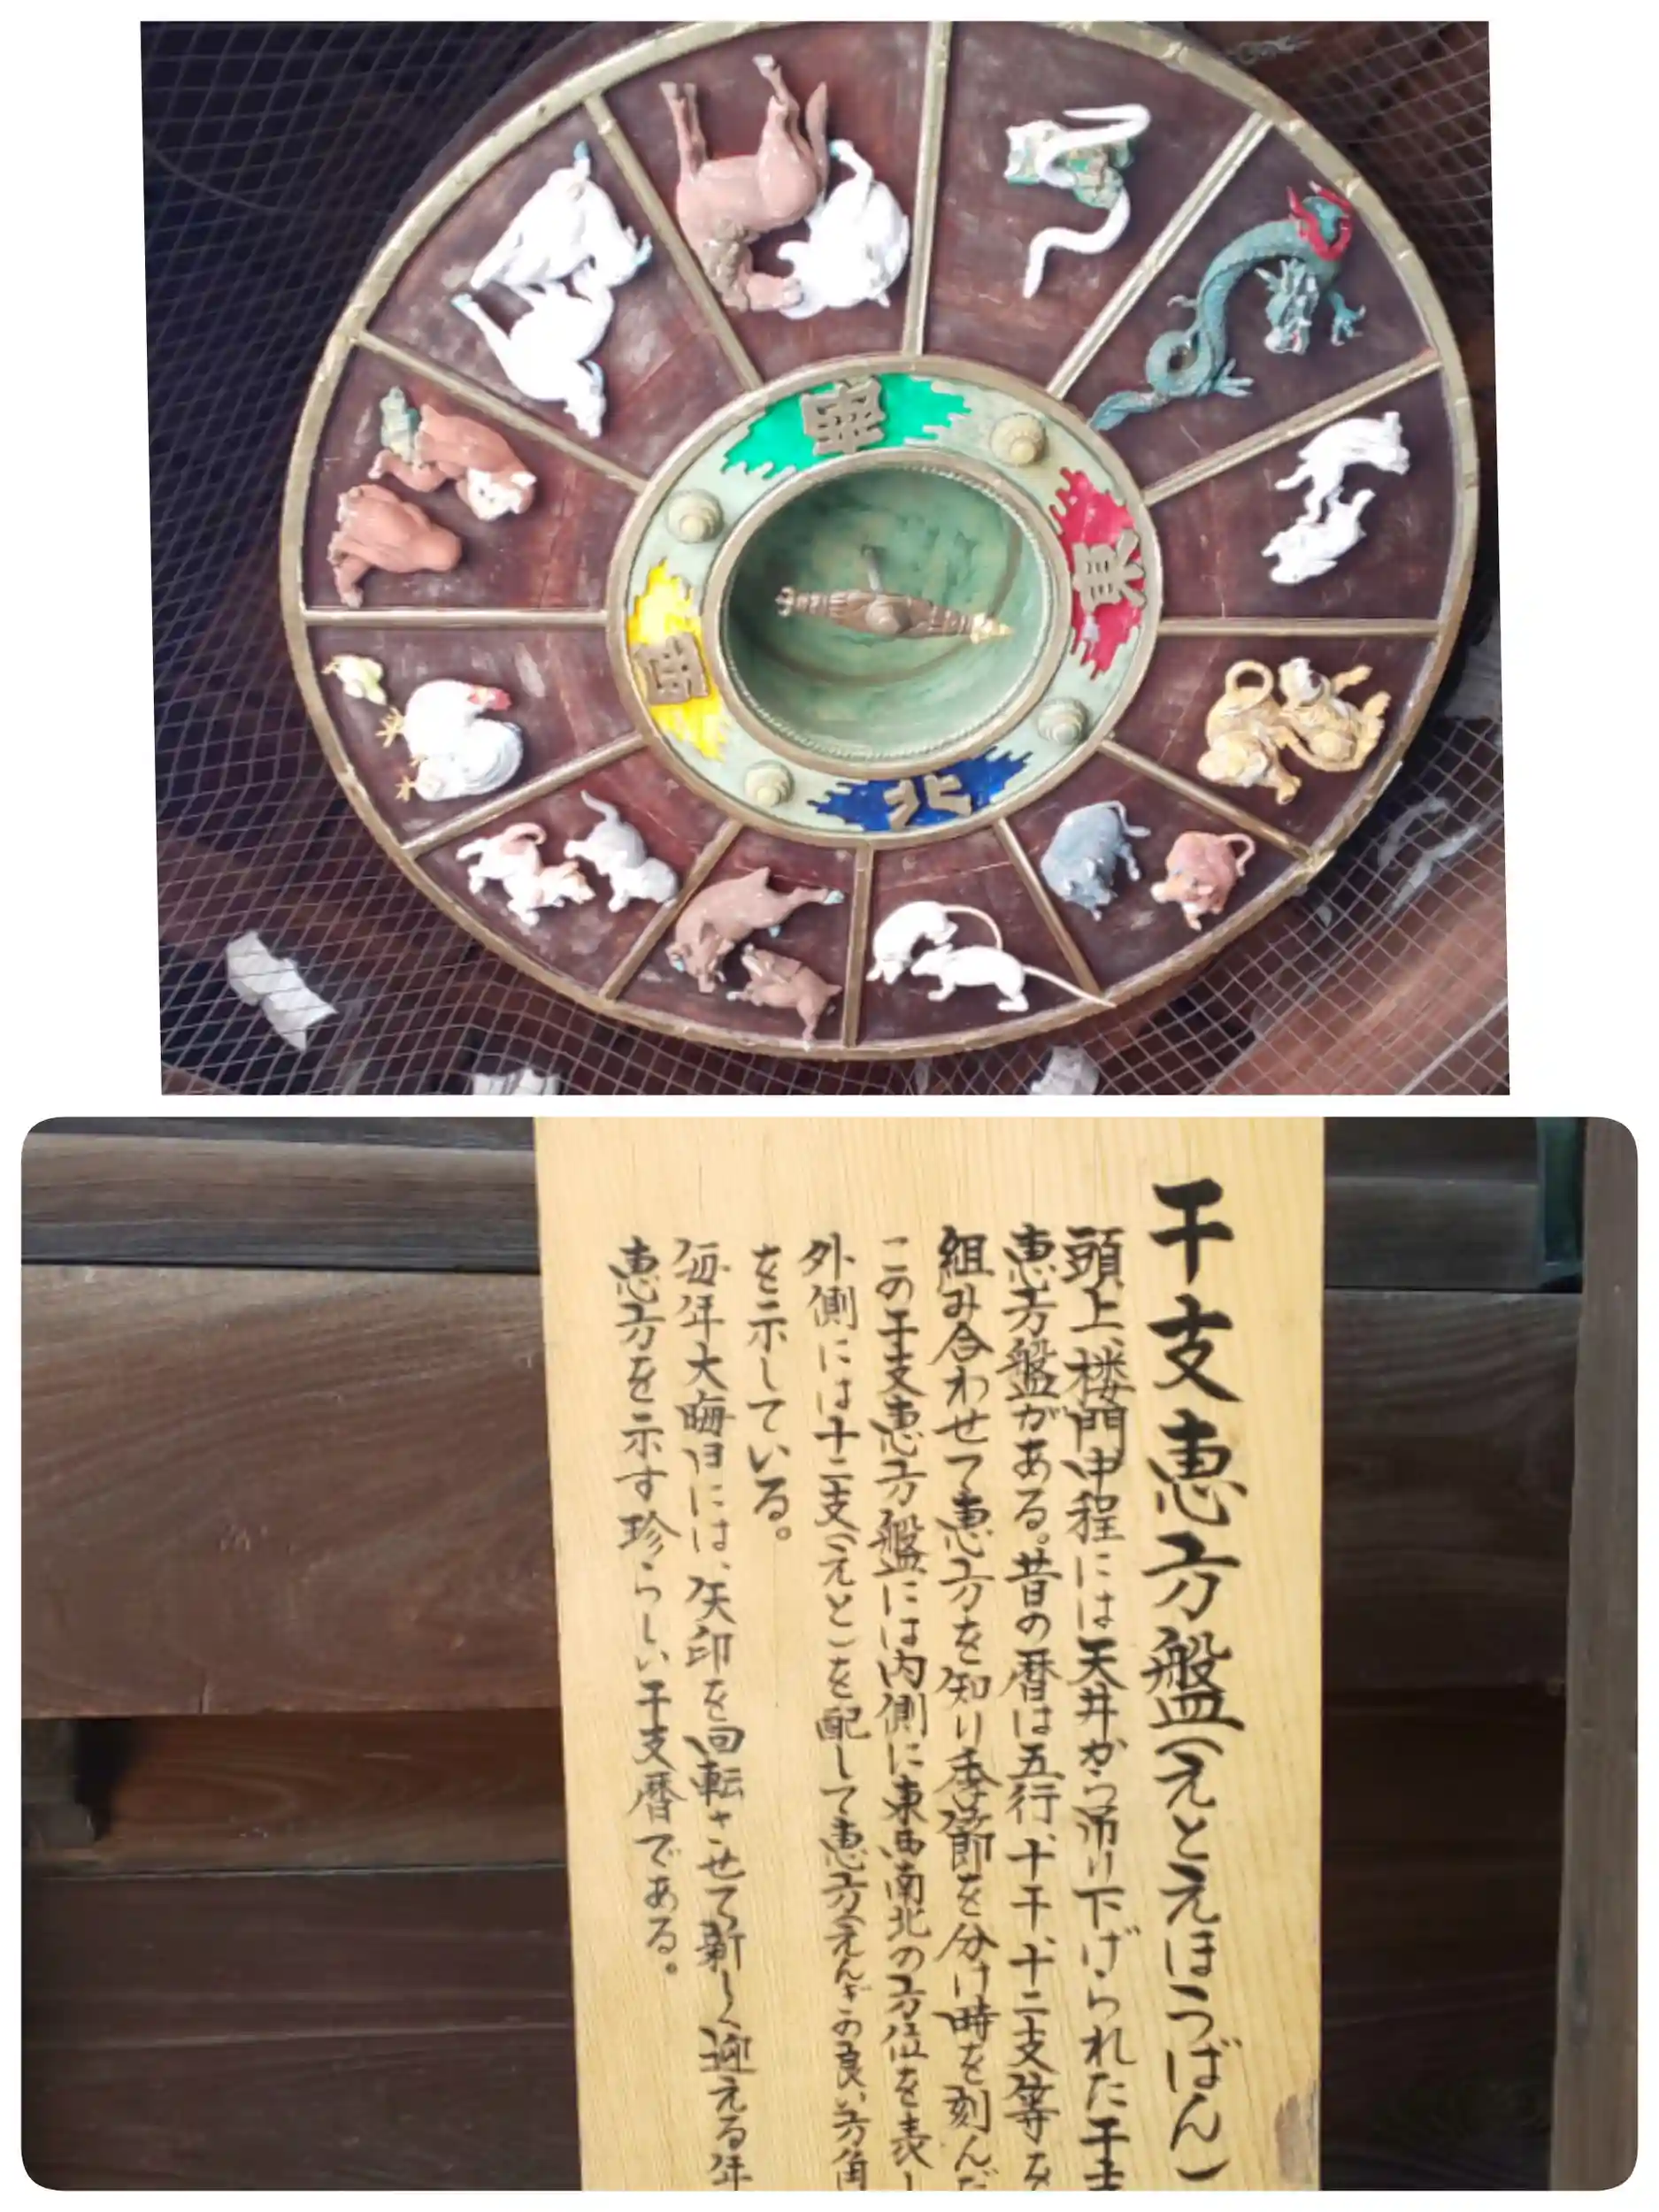 南
東
西
北
干支恵方盤(えとえほうばん)
頭上、楼門中程には天井から吊り下げられた干支
恵方盤がある。昔の暦は五行、十干、十二支等を
組み合わせて恵方を知り季節を分け時を刻んだ
この干支恵方盤には内側に東西南北の方位を表し
外側には十二支(えと)を配して恵方(えんぎの良い方角
を示している。
毎年大晦日には、矢印を回転させて新しく迎える年
恵方を示す珍らしい干支暦である。